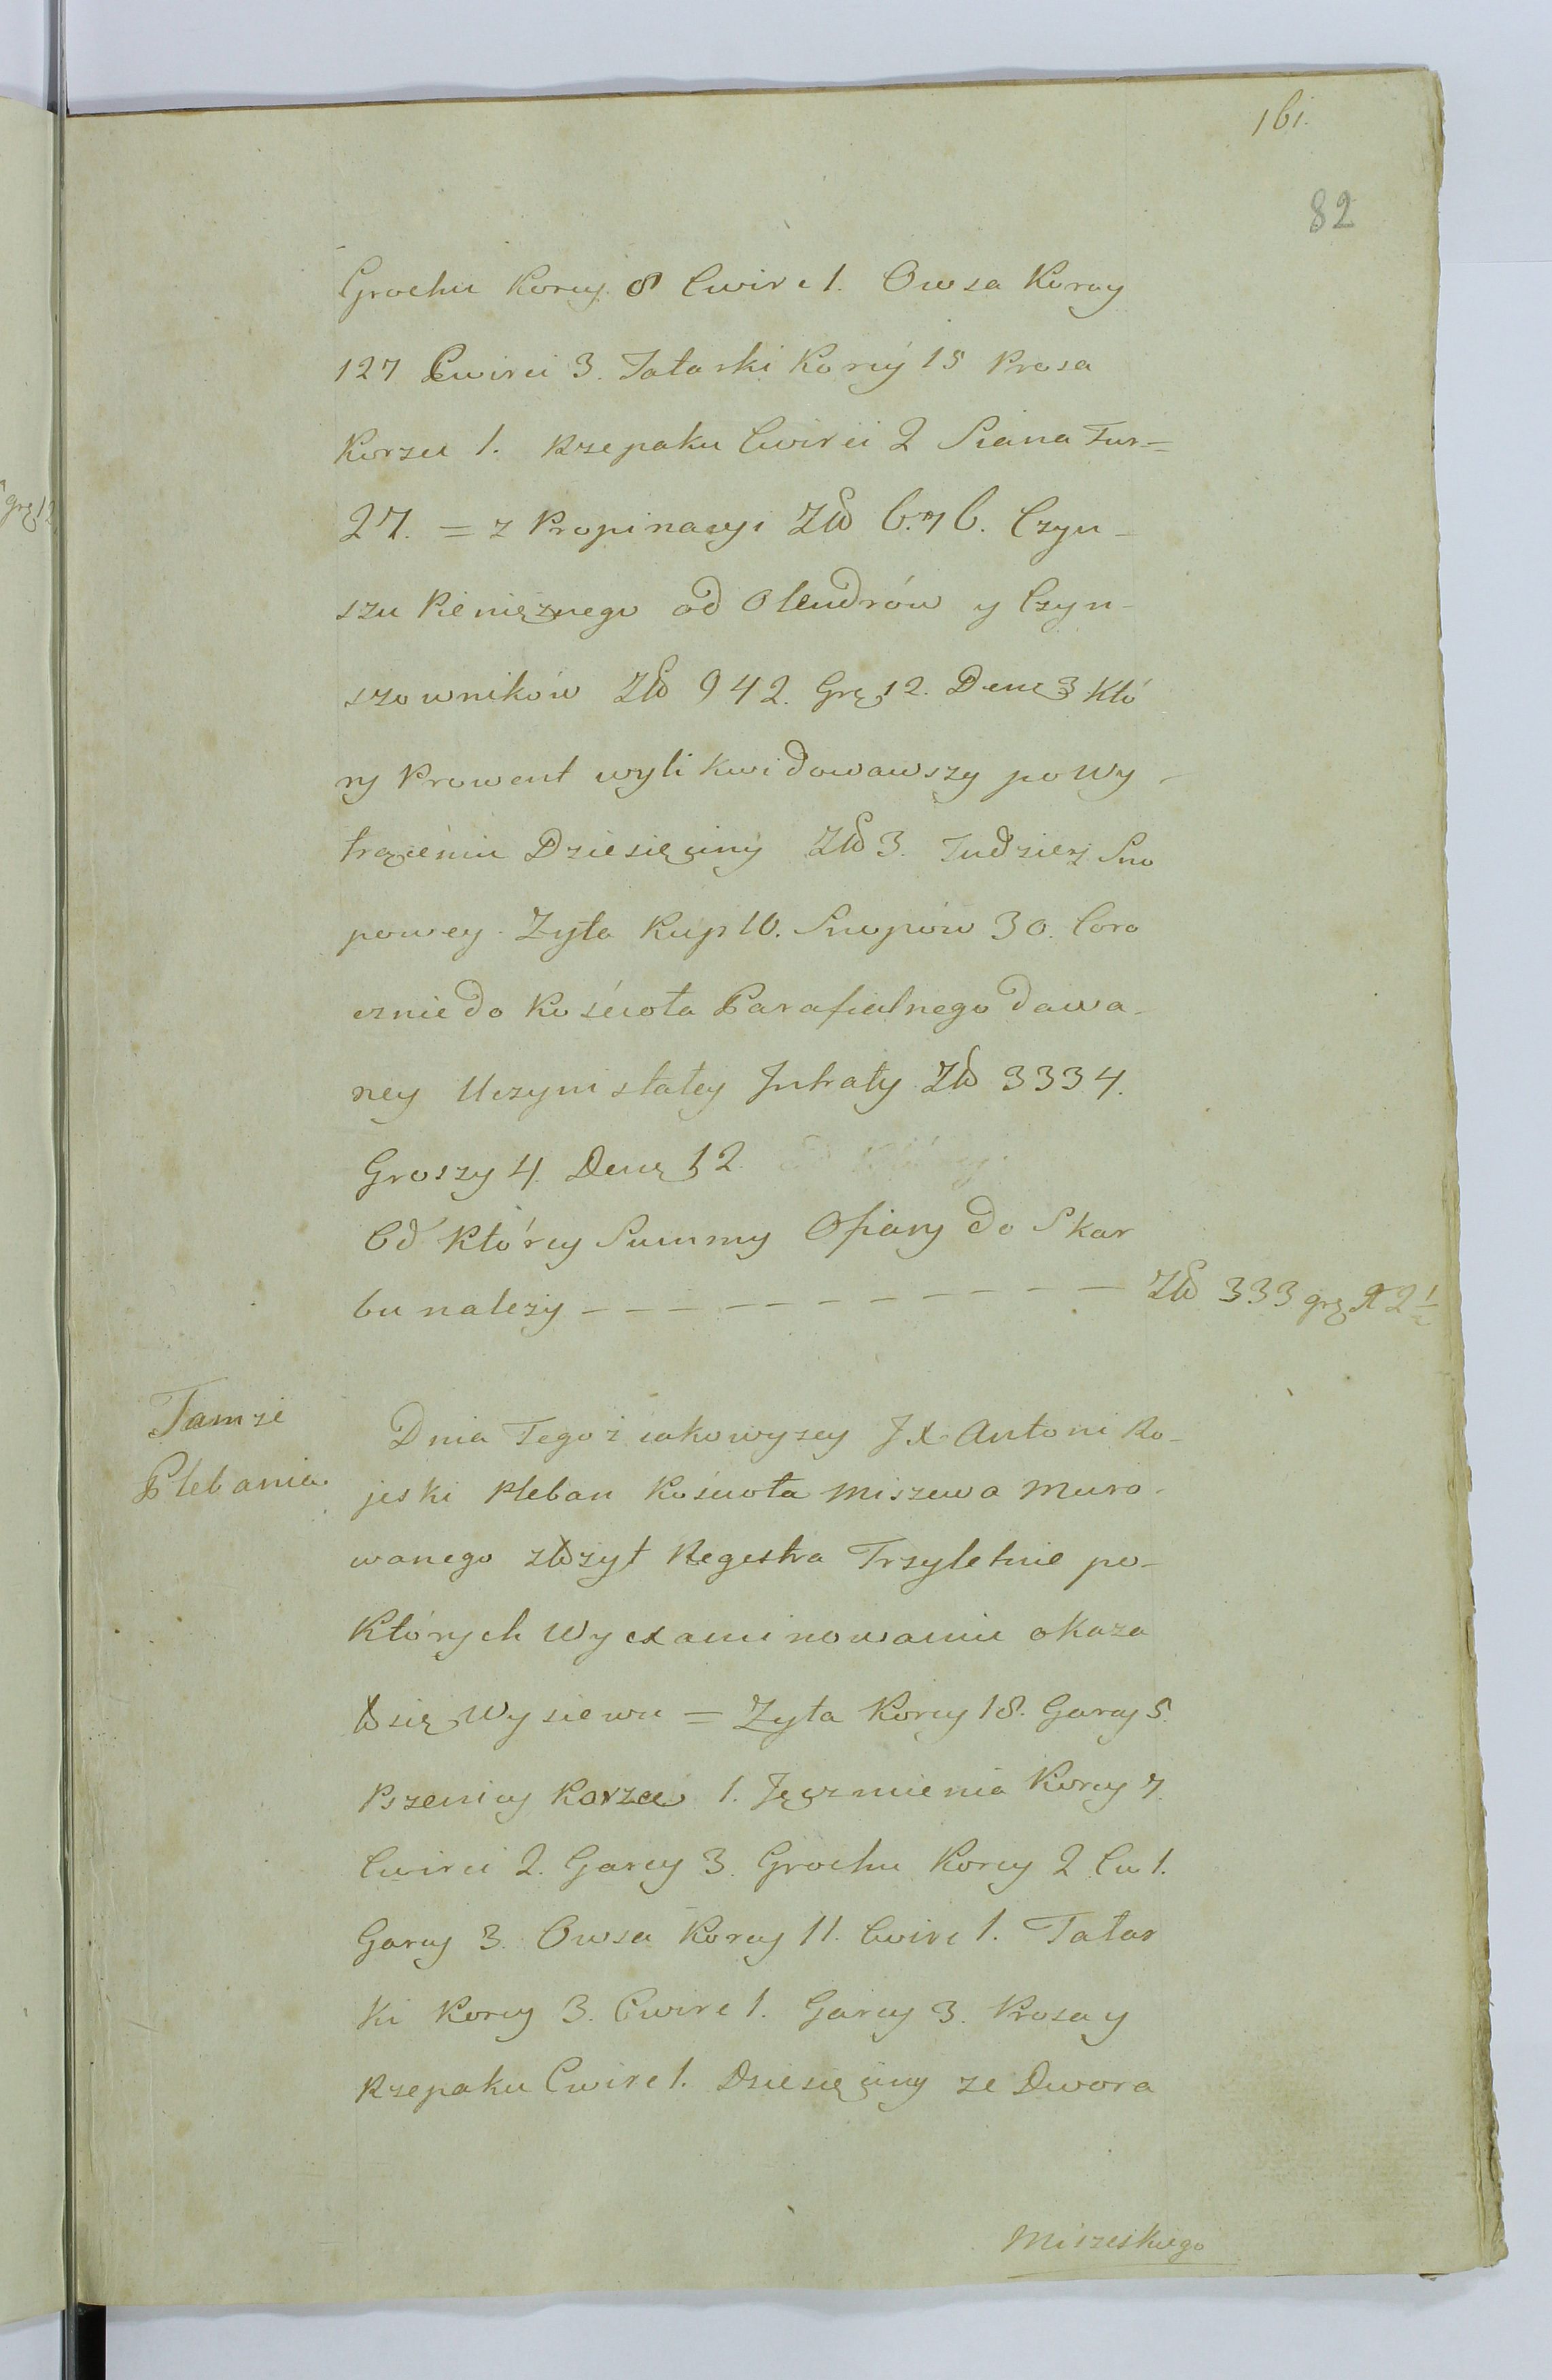 161.
82
Grochu Korcy 8 Cwirc 1. Owsa Korcy
127 Cwirci 3. Tatarki Korcy 15 Prosa
Korzu 1. Rzepaku Cwirci 2 Siana Fur=
27. = z Propinacyi Zł 676. Czyn-
szu Pieniężnego od Olendrów y Czyn-
szowników Zł 942. Grę 12. Denę 3 Któ
ry Prowent wylikwidowawszy po wy-
trąceniu Dziesięciny Zł 3. Tudziesz Sno
powey Zyta Kup 10. Snopów 30. Coro
cznie do Kościoła Parafialnego dawa-
ney Uczyni stałey Jntraty Zł 3334.
Groszy 4. Denę 12.
Od Którey Summy Ofiary do Skar
bu należy - - - - - - - - - - - - Zł 333 grę 12 ½
Tamże
Plebania
Dnia Tegoż iakowyzey JX Antoni Ro-
jeski Pleban Kościoła Miszewa Muro-
wanego złożył Regestra Trzyletnie po-
Których Wyexaminowaniu okaza
ło się Wysiewu = Zyta Korcy 18. Garcy 5.
Pszenicy Korzec 1. Jęczmienia Korcy 7.
Cwirci 2. Garcy 3. Grochu Korcy 2 Cw 1.
Garcy 3. Owsa Korcy 11. Cwirc 1. Tatar
ki Korcy 3. Cwirc 1. Garcy 3. Prosa y
Rzepaku Cwirc 1. Dziesięciny ze Dwora
Miszeskiego